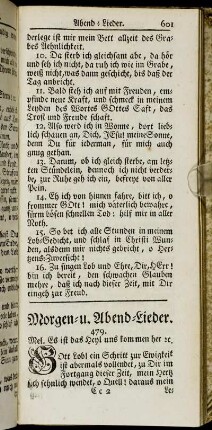 Abend-Lieder. 601
derlege ist mir mein Bett allzeit des Gra-
bes Aehnlichkeit.
10. Da sterb ich gleichsam abe, da hör
und seh ich nicht, da ruh ich wie im Grabe,
weiß nicht, was dann geschicht, bis daß der
Tag anbricht.
11. Bald steh ich auf mit Freuden, em-
pfinde neue Krafft, und schmeck in meinem
Leiden des Wortes GOttes Safft, das
Trost und Freude schafft.
12. Also werd ich in Wonne, dort lieb-
lich schauen an, Dich, JEsu! meine Sonne,
denn Du für iederman, für mich auch
gnug gethan.
13. Darum, ob ich gleich sterbe, am letz-
ten Stündelein, dennoch ich nicht verder-
be, zur Ruhe geh ich ein, befreyt von aller
Pein.
14. Eh ich von hinnen fahre, bitt ich, o
frommer GOtt! mich väterlich bewahre,
fürm bösen schnellen Tod: hilf mir in aller
Noth.
15. So bet ich alle Stunden in meinem
Lobs-Gedicht, und schlaf in Christi Wun-
den, alsdenn mir nichts gebricht, o Her-
tzens-Zuversicht!
16. Zu singen Lob und Ehre, Dir, HErr!
bin ich bereit, den schnöden Glauben
mehre, daß ich nach dieser Zeit, mit Dir
eingeh zur Freud.
Morgen- u. Abend-Lieder.
479.
Mel. Es ist das Heyl uns kommen her ꝛc.
GOtt Lob! ein Schritt zur Ewigkeit
ist abermals vollendet, zu Dir im
Fortgang dieser Zeit, mein Hertz
sich sehnlich wendet, o Quell! daraus mein
Cc 2 Le-